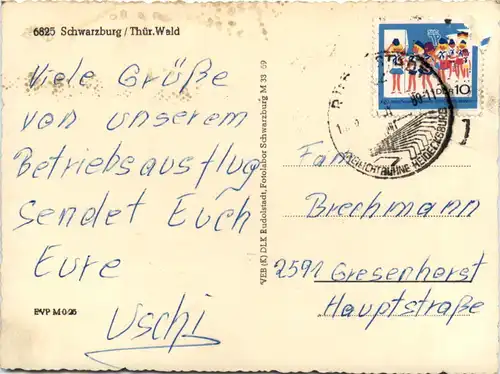 6825 Schwarzburg / Thür. Wald
Viele Grüße
von unserem
Betriebsausflug
sendet Euch
Eure
Uschi
EVP M 0.25
VEB (K) DLK Rudolstadt, Fotolabor Schwarzburg M 33 69
DDR 10
FREILICHTBÜHNE HEIDECKSBURG
Fam
Brechmann
2591 Gresenhorst
Hauptstraße